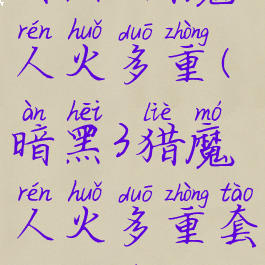 rén huǒ duō zhòng
人火多重(
àn hēi liè mó
暗黑3猎魔
rén huǒ duō zhòng tào
人火多重套